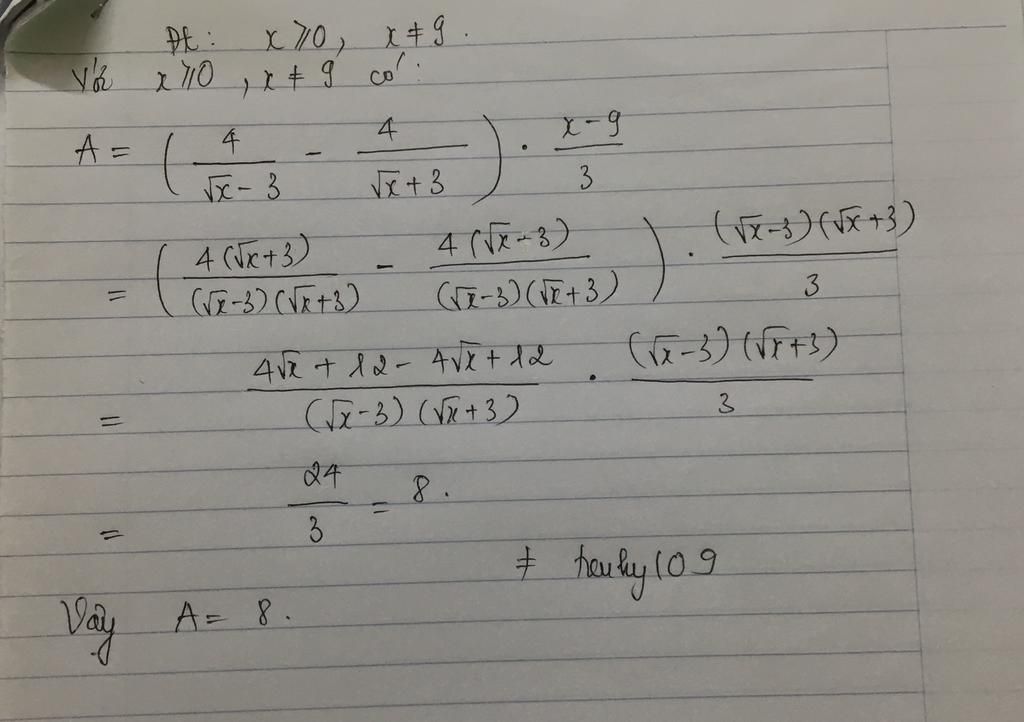 Đk: x ⩾ 0, x ≠ 9.
Với x ⩾ 0, x ≠ 9 có:
A = ( 4/(√x - 3) - 4/(√x + 3) ) . (x - 9)/3
= ( 4(√x+3)/((√x-3)(√x+3)) - 4(√x-3)/((√x-3)(√x+3)) ) . (√x-3)(√x+3)/3
= (4√x + 12 - 4√x + 12)/((√x-3)(√x+3)) . (√x-3)(√x+3)/3
= 24/3 = 8.
Vậy A = 8.